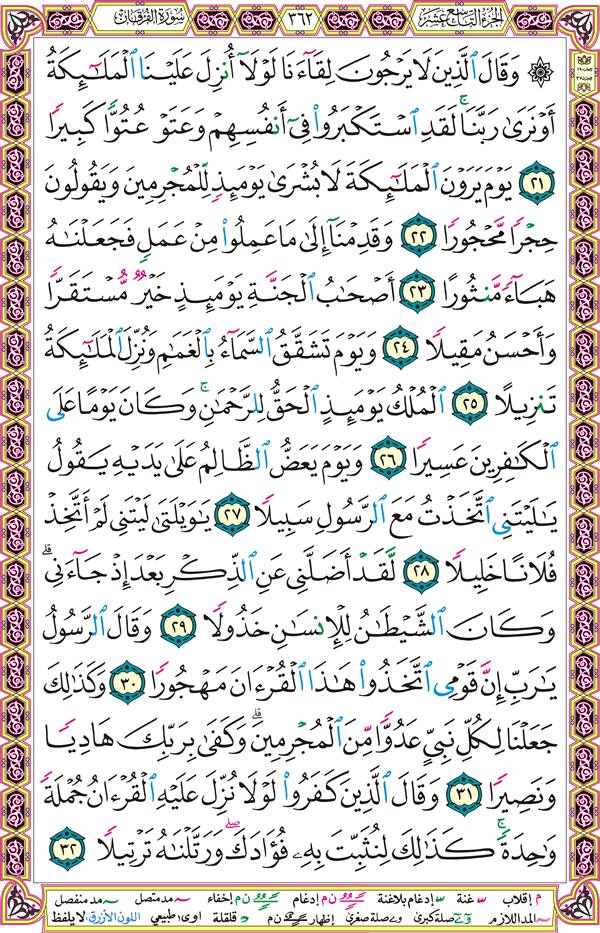 الجزء التاسع عشر ٣٦٢ سورة الفرقان
۞ وَقَالَ ٱلَّذِينَ لَا يَرْجُونَ لِقَآءَنَا لَوْلَآ أُنزِلَ عَلَيْنَا ٱلْمَلَٰٓئِكَةُ
أَوْ نَرَىٰ رَبَّنَا ۗ لَقَدِ ٱسْتَكْبَرُوا۟ فِىٓ أَنفُسِهِمْ وَعَتَوْ عُتُوًّا كَبِيرًا
٢١ يَوْمَ يَرَوْنَ ٱلْمَلَٰٓئِكَةَ لَا بُشْرَىٰ يَوْمَئِذٍ لِّلْمُجْرِمِينَ وَيَقُولُونَ
حِجْرًا مَّحْجُورًا ٢٢ وَقَدِمْنَآ إِلَىٰ مَا عَمِلُوا۟ مِنْ عَمَلٍ فَجَعَلْنَٰهُ
هَبَآءً مَّنثُورًا ٢٣ أَصْحَٰبُ ٱلْجَنَّةِ يَوْمَئِذٍ خَيْرٌ مُّسْتَقَرًّا
وَأَحْسَنُ مَقِيلًا ٢٤ وَيَوْمَ تَشَقَّقُ ٱلسَّمَآءُ بِٱلْغَمَٰمِ وَنُزِّلَ ٱلْمَلَٰٓئِكَةُ
تَنزِيلًا ٢٥ ٱلْمُلْكُ يَوْمَئِذٍ ٱلْحَقُّ لِلرَّحْمَٰنِ ۚ وَكَانَ يَوْمًا عَلَى
ٱلْكَٰفِرِينَ عَسِيرًا ٢٦ وَيَوْمَ يَعَضُّ ٱلظَّالِمُ عَلَىٰ يَدَيْهِ يَقُولُ
يَٰلَيْتَنِى ٱتَّخَذْتُ مَعَ ٱلرَّسُولِ سَبِيلًا ٢٧ يَٰوَيْلَتَىٰ لَيْتَنِى لَمْ أَتَّخِذْ
فُلَانًا خَلِيلًا ٢٨ لَّقَدْ أَضَلَّنِى عَنِ ٱلذِّكْرِ بَعْدَ إِذْ جَآءَنِى ۗ
وَكَانَ ٱلشَّيْطَٰنُ لِلْإِنسَٰنِ خَذُولًا ٢٩ وَقَالَ ٱلرَّسُولُ
يَٰرَبِّ إِنَّ قَوْمِى ٱتَّخَذُوا۟ هَٰذَا ٱلْقُرْءَانَ مَهْجُورًا ٣٠ وَكَذَٰلِكَ
جَعَلْنَا لِكُلِّ نَبِىٍّ عَدُوًّا مِّنَ ٱلْمُجْرِمِينَ ۗ وَكَفَىٰ بِرَبِّكَ هَادِيًا
وَنَصِيرًا ٣١ وَقَالَ ٱلَّذِينَ كَفَرُوا۟ لَوْلَا نُزِّلَ عَلَيْهِ ٱلْقُرْءَانُ جُمْلَةً
وَٰحِدَةً ۚ كَذَٰلِكَ لِنُثَبِّتَ بِهِۦ فُؤَادَكَ ۖ وَرَتَّلْنَٰهُ تَرْتِيلًا ٣٢
م إقلاب غنة إدغام بلاغنة ن م إدغام ن م إخفاء مد متصل مد منفصل
المد اللازم صلة كبرى صلة صغرى إظهار ن م قلقلة اوى طبيعي اللون الأزرق لا يلفظ